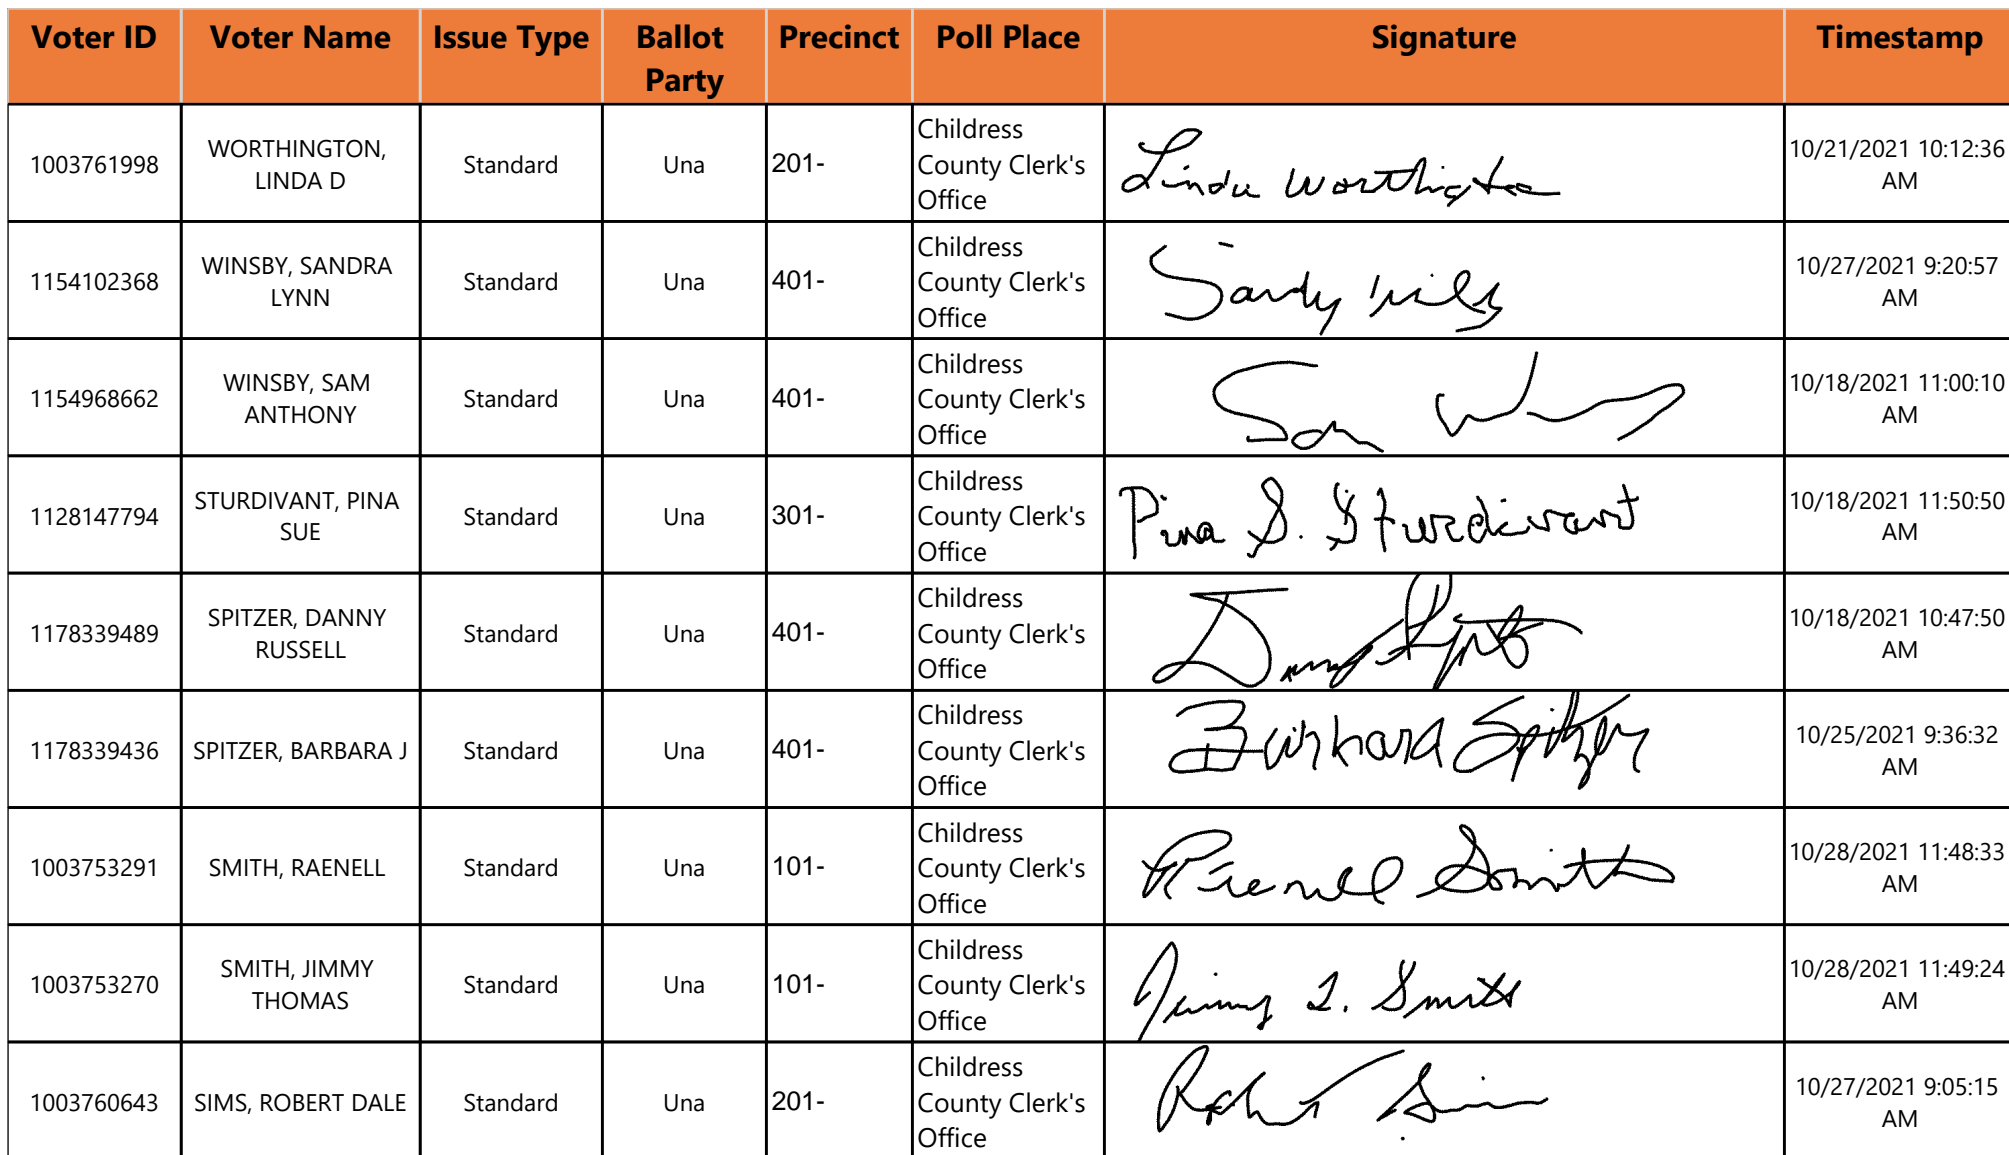 Voter ID Voter Name Issue Type Ballot Party Precinct Poll Place Signature Timestamp
1003761998 WORTHINGTON, LINDA D Standard Una 201- Childress County Clerk's Office Linda Worthington 10/21/2021 10:12:36 AM
1154102368 WINSBY, SANDRA LYNN Standard Una 401- Childress County Clerk's Office Sandy 10/27/2021 9:20:57 AM
1154968662 WINSBY, SAM ANTHONY Standard Una 401- Childress County Clerk's Office Sam 10/18/2021 11:00:10 AM
1128147794 STURDIVANT, PINA SUE Standard Una 301- Childress County Clerk's Office Pina S. Sturdivant 10/18/2021 11:50:50 AM
1178339489 SPITZER, DANNY RUSSELL Standard Una 401- Childress County Clerk's Office 10/18/2021 10:47:50 AM
1178339436 SPITZER, BARBARA J Standard Una 401- Childress County Clerk's Office Barbara Spitzer 10/25/2021 9:36:32 AM
1003753291 SMITH, RAENELL Standard Una 101- Childress County Clerk's Office Raenell Smith 10/28/2021 11:48:33 AM
1003753270 SMITH, JIMMY THOMAS Standard Una 101- Childress County Clerk's Office Jimmy T. Smith 10/28/2021 11:49:24 AM
1003760643 SIMS, ROBERT DALE Standard Una 201- Childress County Clerk's Office Robert Sims 10/27/2021 9:05:15 AM